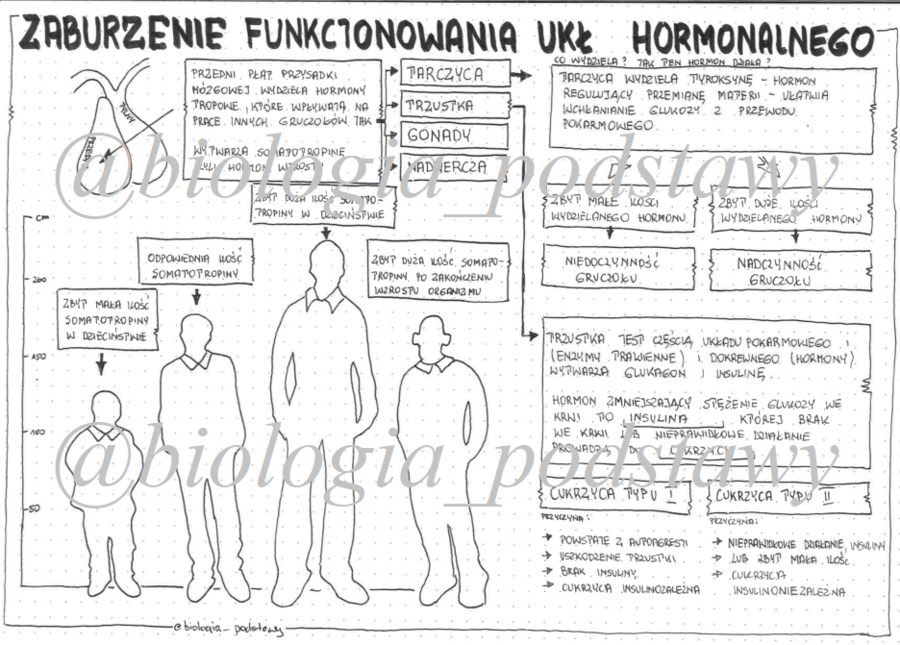 ZABURZENIE FUNKCJONOWANIA UKŁ HORMONALNEGO
PRZEDNI
TYLNY
PRZEDNI PŁAT PRZYSADKI
MÓZGOWEJ WYDZIELA HORMONY
TROPOWE, KTÓRE WPŁYWAJĄ NA
PRACĘ INNYCH GRUCZOŁÓW, JAK
WYTWARZA SOMATOTROPINĘ
CZYLI HORMON WZROSTU
TARCZYCA
TRZUSTKA
GONADY
NADNERCZA
CO WYDZIELA? JAK TEN HORMON DZIAŁA?
TARCZYCA WYDZIELA TYROKSYNĘ - HORMON
REGULUJĄCY PRZEMIANĘ MATERII - UŁATWIA
WCHŁANIANIE GLUKOZY Z PRZEWODU
POKARMOWEGO
@biologia_podstawy
ZBYT MAŁE ILOŚCI
WYDZIELANEGO HORMONU
ZBYT DUŻE ILOŚCI
WYDZIELANEGO HORMONU
NIEDOCZYNNOŚĆ
GRUCZOŁU
NADCZYNNOŚĆ
GRUCZOŁU
cm
200
150
100
50
ZBYT MAŁA ILOŚĆ
SOMATOTROPINY
W DZIECIŃSTWIE
ODPOWIEDNIA ILOŚĆ
SOMATOTROPINY
ZBYT DUŻA ILOŚĆ SOMATO-
TROPINY W DZIECIŃSTWIE
ZBYT DUŻA ILOŚĆ SOMATO-
TROPINY PO ZAKOŃCZENIU
WZROSTU ORGANIZMU
TRZUSTKA JEST CZĘŚCIĄ UKŁADU POKARMOWEGO I
(ENZYMY TRAWIENNE) I DOKREWNEGO (HORMONY)
WYTWARZA GLUKAGON I INSULINĘ
HORMON ZMNIEJSZAJĄCY STĘŻENIE GLUKOZY WE
KRWI TO INSULINA, KTÓREJ BRAK
WE KRWI LUB NIEPRAWIDŁOWE DZIAŁANIE
PROWADZI DO CUKRZYCY
@biologia_podstawy
CUKRZYCA TYPU I
PRZYCZYNA:
POWSTAJE Z AUTOAGRESJI
USZKODZENIE TRZUSTKI
BRAK INSULINY
CUKRZYCA INSULINOZALEŻNA
CUKRZYCA TYPU II
PRZYCZYNA:
NIEPRAWIDŁOWE DZIAŁANIE INSULINY
LUB ZBYT MAŁA ILOŚĆ
CUKRZYCA
INSULINONIEZALEŻNA
@biologia_podstawy